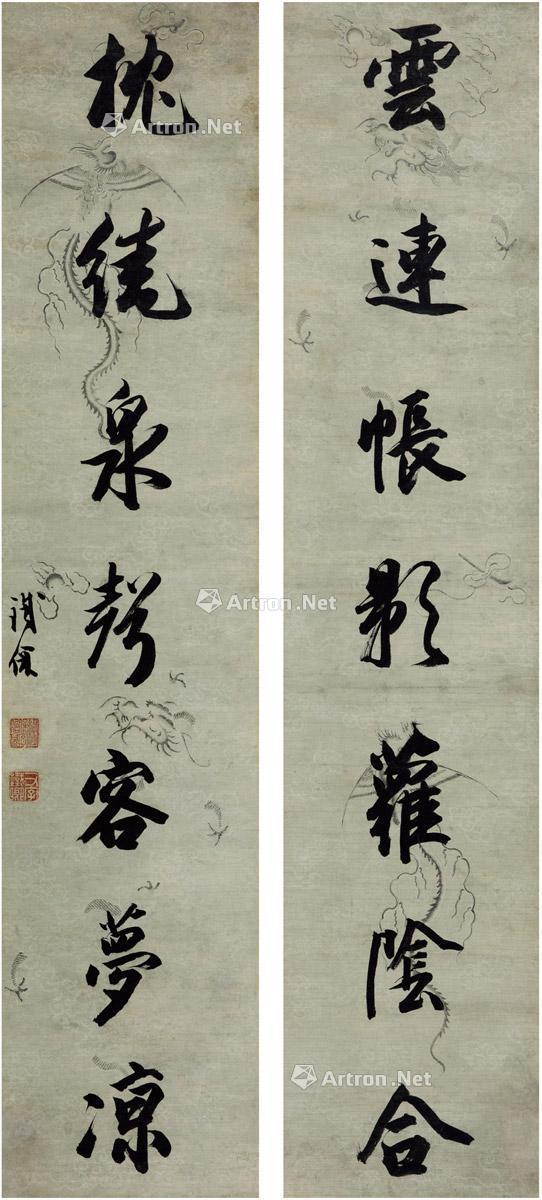 雲連帳影蘿陰合
枕繞泉聲客夢涼
鐵保
Artron.Net
Artron.Net
Artron.Net